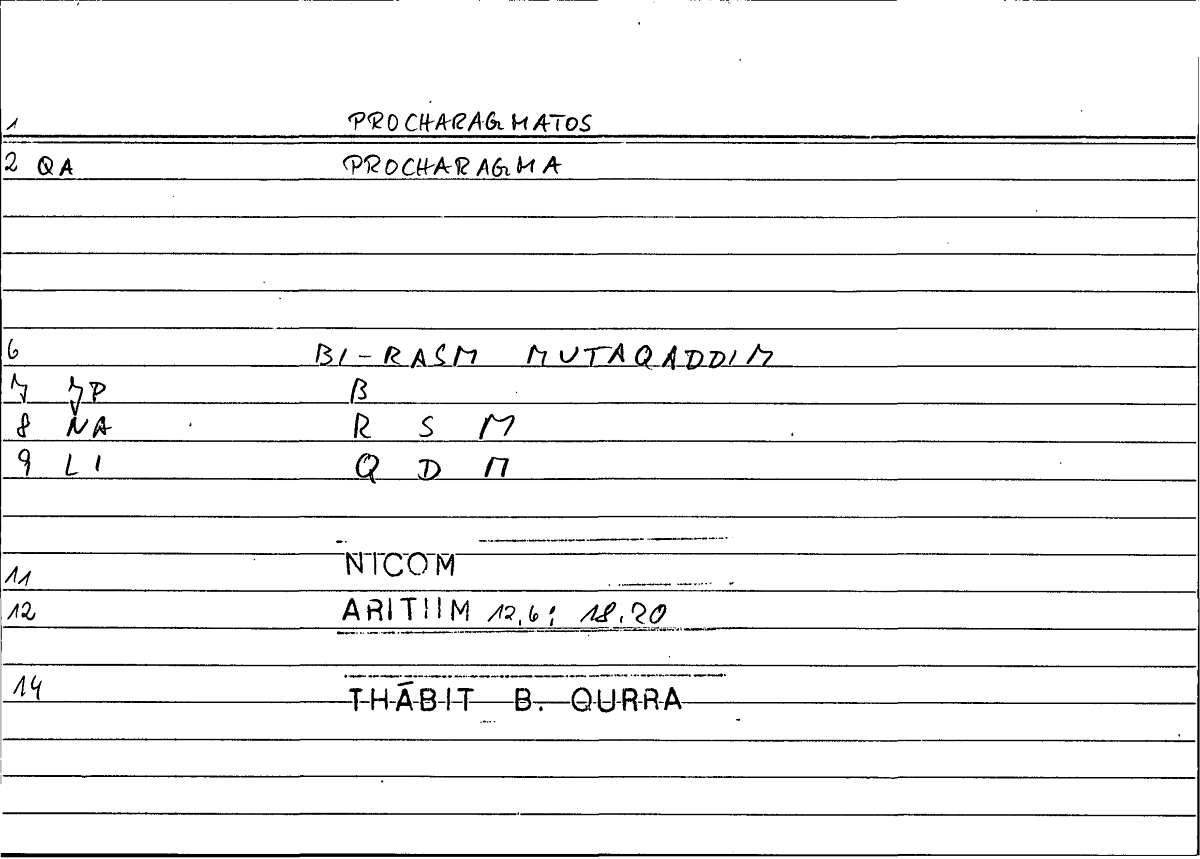 1 PROCHARAGMATOS
2 QA PROCHARAGMA
6 BI-RASM MUTAQADDIM
7 JP B
8 NA R S M
9 LI Q D M
11 NICOM
12 ARITIIM 12,6; 18.20
14 THĀBIT B. QURRA